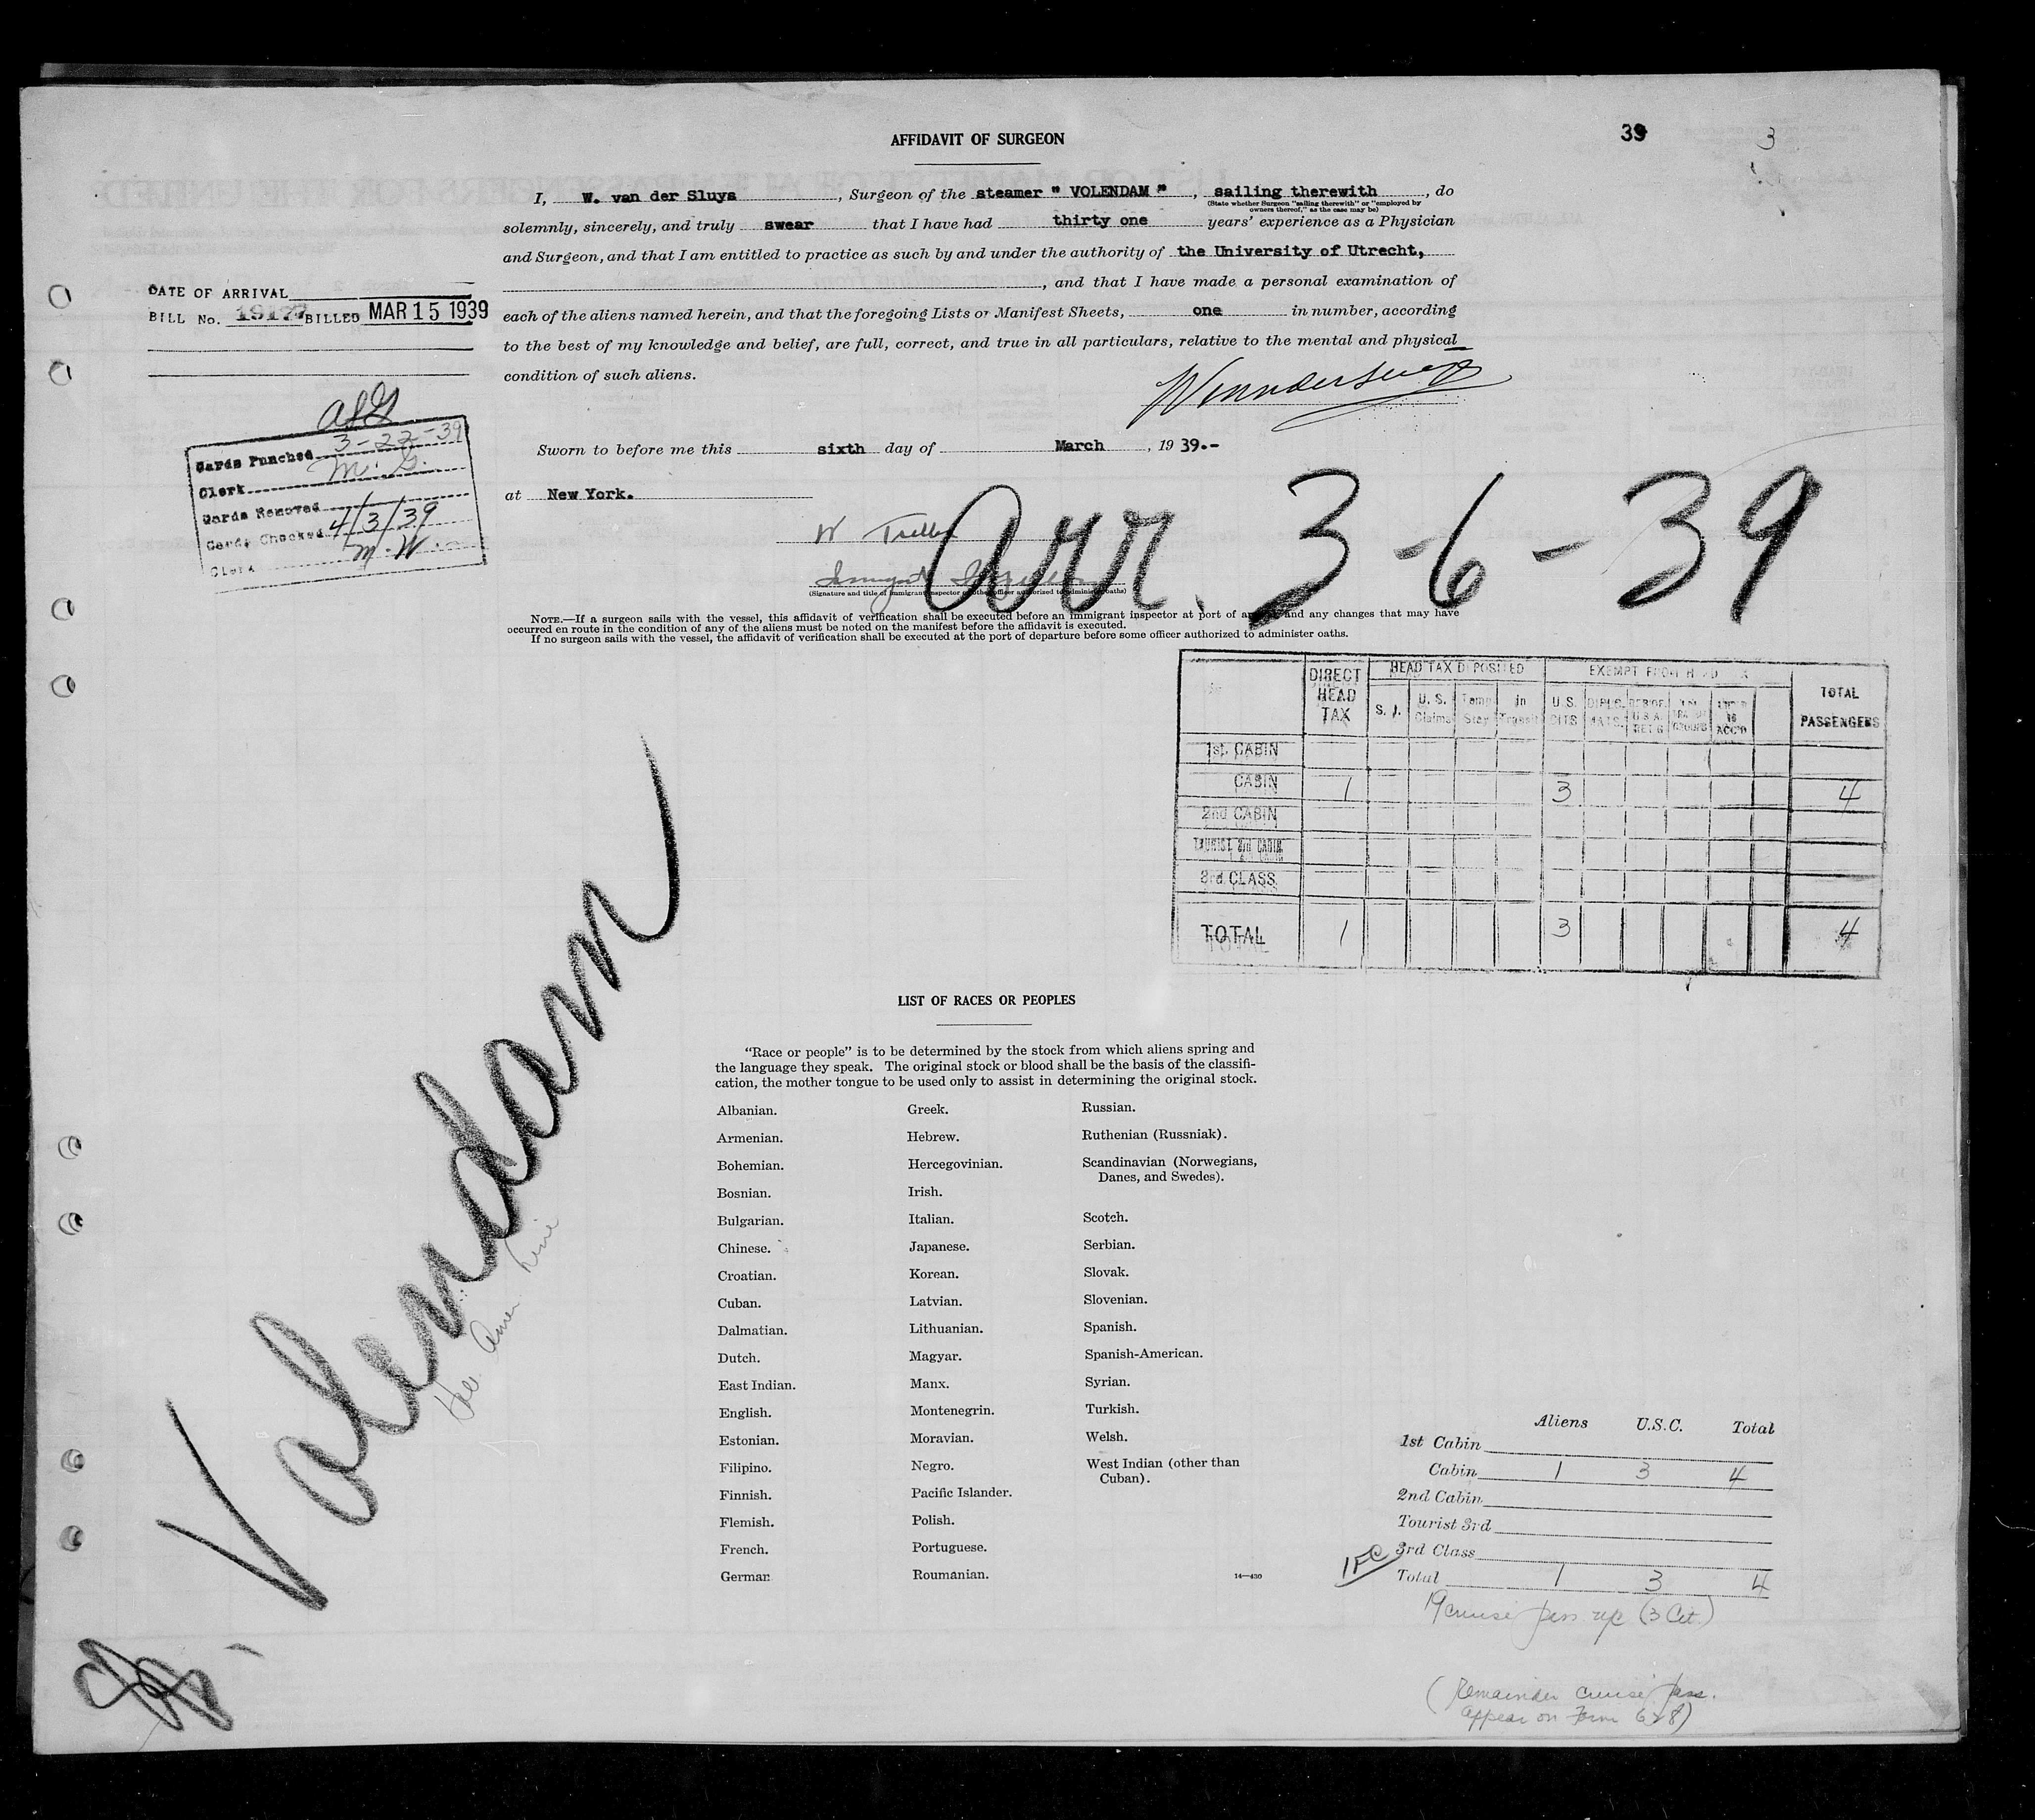 AFFIDAVIT OF SURGEON
39
3
I, W. van der Sluys, Surgeon of the steamer " VOLENDAM ", sailing therewith, do
(State whether Surgeon "sailing therewith" or "employed by
owners thereof," as the case may be)
solemnly, sincerely, and truly swear that I have had thirty one years' experience as a Physician
and Surgeon, and that I am entitled to practice as such by and under the authority of the University of Utrecht,
, and that I have made a personal examination of
each of the aliens named herein, and that the foregoing Lists or Manifest Sheets, one in number, according
to the best of my knowledge and belief, are full, correct, and true in all particulars, relative to the mental and physical
condition of such aliens.
DATE OF ARRIVAL
BILL No. 19177 BILLED MAR 15 1939
Cards Punched 3-22-39
Clerk M. G.
Cards Removed
Cards Checked 4/3/39
Clerk M. W.
Sworn to before me this sixth day of March, 19 39.-
at New York.
Arr. 3-6-39
(Signature and title of immigrant inspector or other officer authorized to administer oaths)
NOTE.—If a surgeon sails with the vessel, this affidavit of verification shall be executed before an immigrant inspector at port of and any changes that may have
occurred en route in the condition of any of the aliens must be noted on the manifest before the affidavit is executed.
If no surgeon sails with the vessel, the affidavit of verification shall be executed at the port of departure before some officer authorized to administer oaths.
DIRECT HEAD TAX
HEAD TAX DEPOSITED
EXEMPT FROM HEAD TAX
TOTAL PASSENGERS
S. I.
U. S. Claims
Temp Stay
in Transit
U.S. CITS
DIPLO. MATS.
1st. CABIN
CABIN 1 3 4
2nd CABIN
TOURIST 3rd CABIN
3rd CLASS
TOTAL 1 3 4
Volendam
Hol. Amer Line
LIST OF RACES OR PEOPLES
"Race or people" is to be determined by the stock from which aliens spring and
the language they speak. The original stock or blood shall be the basis of the classifi-
cation, the mother tongue to be used only to assist in determining the original stock.
Albanian.
Armenian.
Bohemian.
Bosnian.
Bulgarian.
Chinese.
Croatian.
Cuban.
Dalmatian.
Dutch.
East Indian.
English.
Estonian.
Filipino.
Finnish.
Flemish.
French.
German
Greek.
Hebrew.
Hercegovinian.
Irish.
Italian.
Japanese.
Korean.
Latvian.
Lithuanian.
Magyar.
Manx.
Montenegrin.
Moravian.
Negro.
Pacific Islander.
Polish.
Portuguese.
Roumanian.
Russian.
Ruthenian (Russniak).
Scandinavian (Norwegians,
Danes, and Swedes).
Scotch.
Serbian.
Slovak.
Slovenian.
Spanish.
Spanish-American.
Syrian.
Turkish.
Welsh.
West Indian (other than
Cuban).
14—430
Aliens U.S.C. Total
1st Cabin
Cabin 1 3 4
2nd Cabin
Tourist 3rd
3rd Class
Total 1 3 4
(Remainder cruise pass.
appear on Form 628)